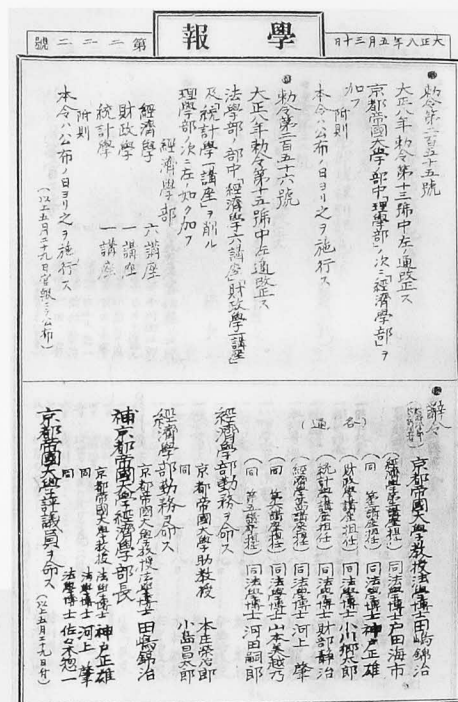 大正八年五月三十日
學報
第二一二二號
勅令第二百五十五號
大正八年勅令第十三號中左ノ通改正ス
京都帝國大學ノ部中「理學部」ノ次ニ「經濟學部」ヲ
加フ
附則
本令ハ公布ノ日ヨリ之ヲ施行ス
勅令第二百五十六號
大正八年勅令第十五號中左ノ通改正ス
法學部ノ部中「經濟學六講座」「財政學一講座」
及「統計學一講座」ヲ削ル
理學部ノ次ニ左ノ如ク加フ
經濟學部
經濟學 六講座
財政學 一講座
統計學 一講座
附則
本令ハ公布ノ日ヨリ之ヲ施行ス
(以上五月二十九日官報ニテ公布)
辭令
京都帝國大學教授法學博士田嶋錦治
(經濟學第二講座擔任) 同 法學博士 戸田海市
(同 第三講座擔任) 同 法學博士 神戸正雄
(財政學講座擔任) 同 法學博士 小川郷太郎
(統計學講座擔任) 同 法學博士 財部静治
(經濟學第四講座擔任) 同 法學博士 河上肇
(同 第六講座擔任) 同 法學博士 山本美越乃
(同 第五講座擔任) 同 法學博士 河田嗣郎
(各通)
經濟學部勤務ヲ命ス
京都帝國大學助教授 本庄榮治郎
同 小島昌太郎
經濟學部勤務ヲ命ス
京都帝國大學教授法學博士 田嶋錦治
補京都帝國大學經濟學部長
京都帝國大學教授 法學博士 神戸正雄
同 法學博士 河上肇
同 法學博士 佐々木惣一
京都帝國大學評議員ヲ命ス
(以上五月二十九日付)